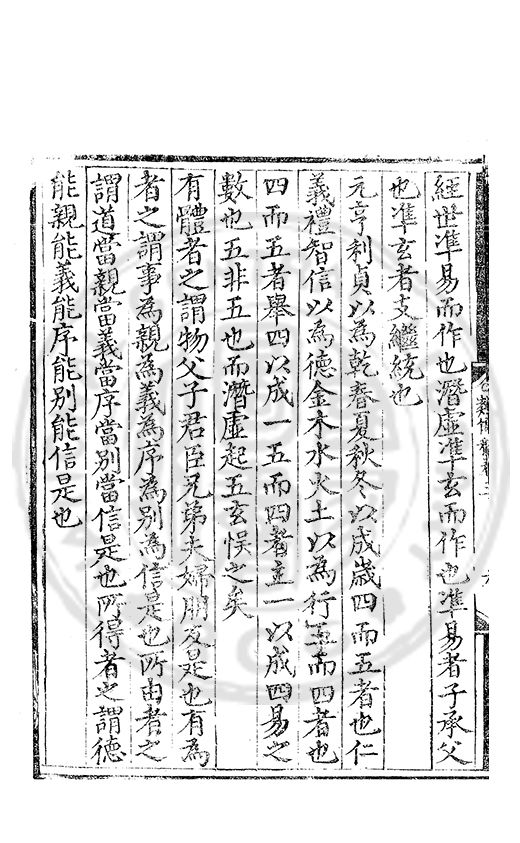 經世準易而作也潛虛準玄而作也準易者子承父
也準玄者支繼統也
元亨利貞以為乾春夏秋冬以成歲四而五者也仁
義禮智信以為德金木水火土以為行五而四者也
四而五者舉四以成一五而四者主一以成四易之
數也五非五也而潛虛起五玄悞之矣
有體者之謂物父子君臣兄弟夫婦朋友是也有為
者之謂事為親為義為序為別為信是也所由者之
謂道當親當義當序當別當信是也所得者之謂德
能親能義能序能別能信是也